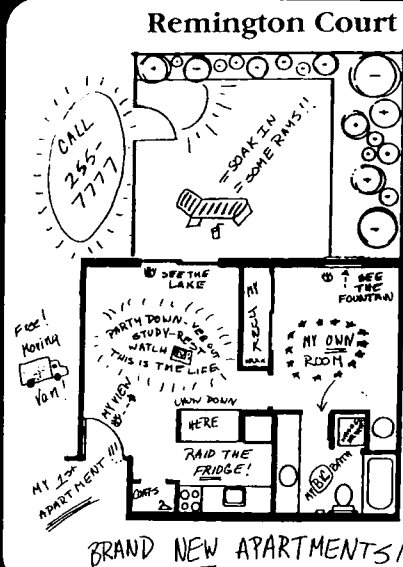 Remington Court
CALL
255-
7777
SOAK IN
SOME RAYS!!
SEE THE
LAKE
SEE
THE
FOUNTAIN
PARTY DOWN-VEG OUT
STUDY-REST
WATCH
THIS IS THE LIFE
MY
MY OWN
ROOM
Free!
Moving
Van!
MY VIEW
CHOW DOWN
HERE
RAID THE
FRIDGE!
MY 1st
APARTMENT!!!
COATS
MY
BATH
BRAND NEW APARTMENTS!